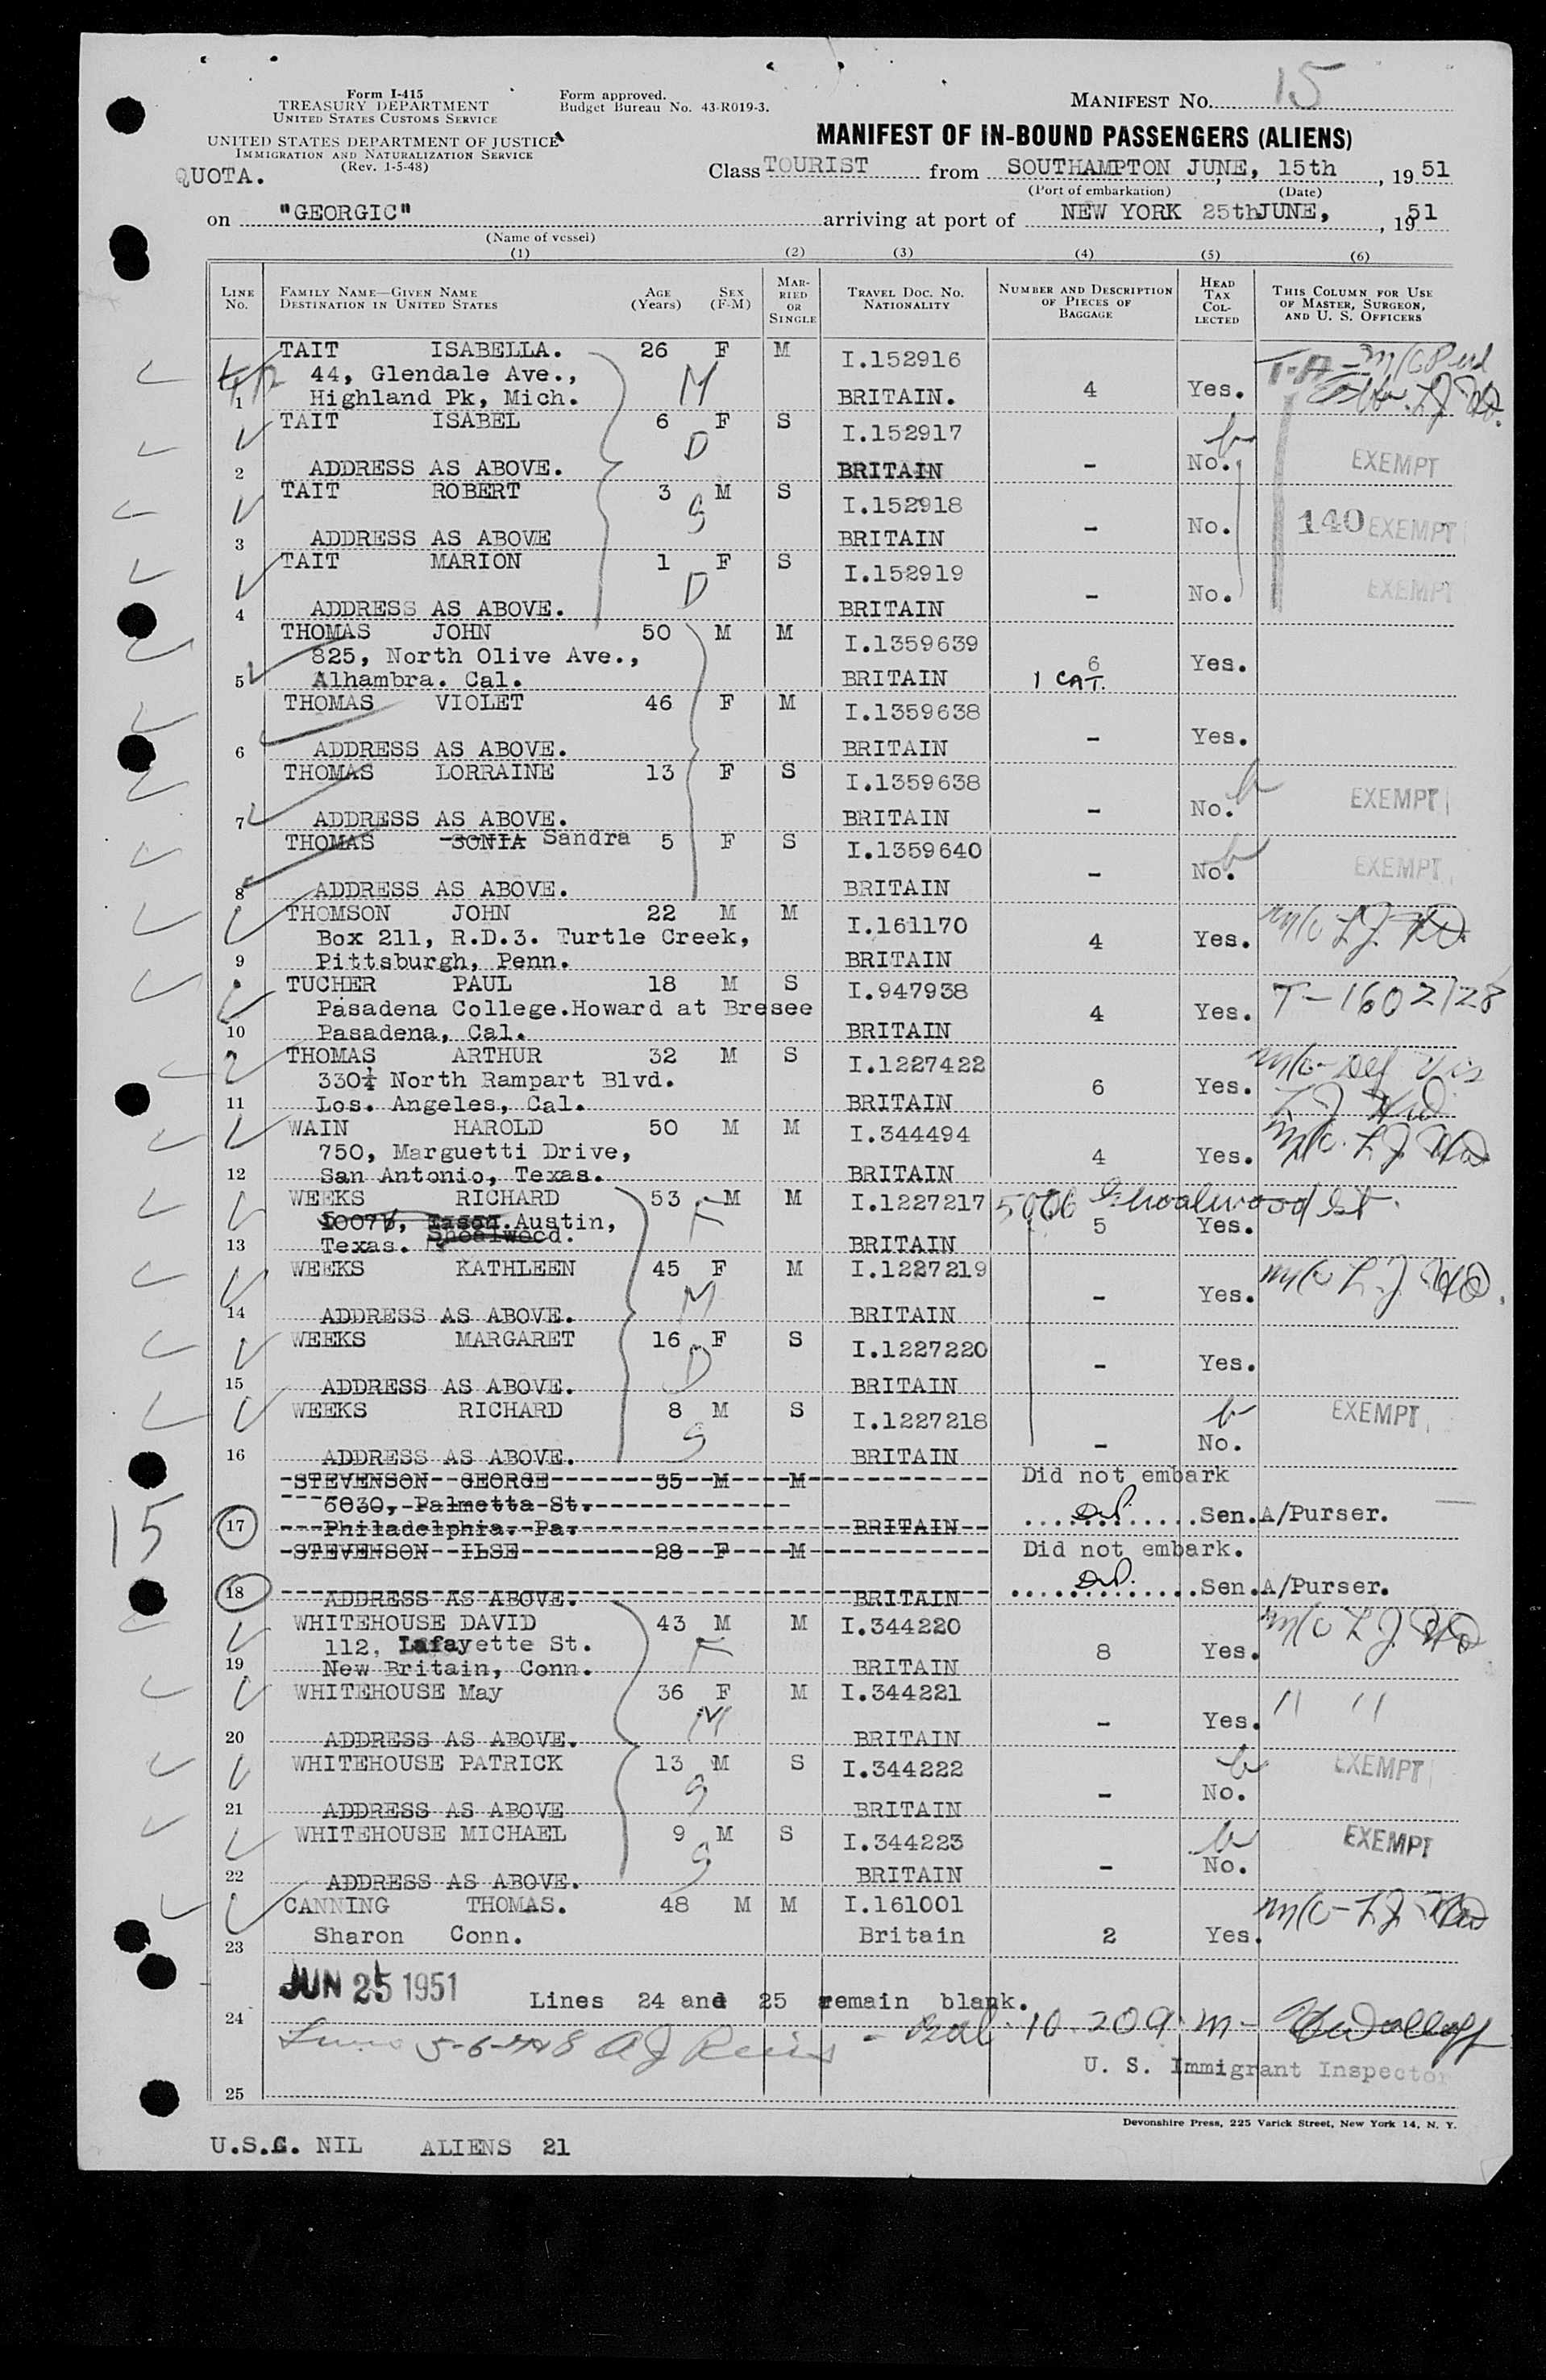 15
Form I-415
TREASURY DEPARTMENT
UNITED STATES CUSTOMS SERVICE
UNITED STATES DEPARTMENT OF JUSTICE
IMMIGRATION AND NATURALIZATION SERVICE
(Rev. 1-5-48)
Form approved.
Budget Bureau No. 43-R019-3.
MANIFEST NO.
MANIFEST OF IN-BOUND PASSENGERS (ALIENS)
QUOTA.
Class TOURIST from SOUTHAMPTON JUNE, 15th, 1951
(Port of embarkation) (Date)
on "GEORGIC" arriving at port of NEW YORK 25th JUNE, 1951
(Name of vessel)
(1) (2) (3) (4) (5) (6)
LINE NO. FAMILY NAME—GIVEN NAME DESTINATION IN UNITED STATES AGE (Years) SEX (F-M) MARRIED OR SINGLE TRAVEL DOC. NO. NATIONALITY NUMBER AND DESCRIPTION OF PIECES OF BAGGAGE HEAD TAX COLLECTED THIS COLUMN FOR USE OF MASTER, SURGEON, AND U. S. OFFICERS
TAIT ISABELLA. 26 F M I.152916
44, Glendale Ave., M
1 Highland Pk, Mich. BRITAIN. 4 Yes.
TAIT ISABEL 6 F S I.152917
D
2 ADDRESS AS ABOVE. BRITAIN - No. EXEMPT
TAIT ROBERT 3 M S I.152918
S
3 ADDRESS AS ABOVE BRITAIN - No. 140 EXEMPT
TAIT MARION 1 F S I.152919
D
4 ADDRESS AS ABOVE. BRITAIN - No. EXEMPT
THOMAS JOHN 50 M M I.1359639
825, North Olive Ave., 6 Yes.
5 Alhambra. Cal. BRITAIN 1 CAT.
THOMAS VIOLET 46 F M I.1359638
6 ADDRESS AS ABOVE. BRITAIN - Yes.
THOMAS LORRAINE 13 F S I.1359638
7 ADDRESS AS ABOVE. BRITAIN - No. EXEMPT
THOMAS SONIA Sandra 5 F S I.1359640
8 ADDRESS AS ABOVE. BRITAIN - No. EXEMPT
THOMSON JOHN 22 M M I.161170
Box 211, R.D.3. Turtle Creek, 4 Yes.
9 Pittsburgh, Penn. BRITAIN
TUCHER PAUL 18 M S I.947938
Pasadena College.Howard at Bresee 4 Yes. T-1602128
10 Pasadena, Cal. BRITAIN
THOMAS ARTHUR 32 M S I.1227422
330¼ North Rampart Blvd. 6 Yes.
11 Los. Angeles, Cal. BRITAIN
WAIN HAROLD 50 M M I.344494
750, Marguetti Drive, 4 Yes.
12 San Antonio, Texas. BRITAIN
WEEKS RICHARD 53 M M I.1227217 Shoalwood St.
Austin, F 5 Yes.
13 Texas. Shoalwood. BRITAIN
WEEKS KATHLEEN 45 F M I.1227219
M
14 ADDRESS AS ABOVE. BRITAIN - Yes.
WEEKS MARGARET 16 F S I.1227220
D
15 ADDRESS AS ABOVE. BRITAIN - Yes.
WEEKS RICHARD 8 M S I.1227218 EXEMPT
S
16 ADDRESS AS ABOVE. BRITAIN - No.
STEVENSON GEORGE 35 M M Did not embark
5030, Palmetta St.
15
17 Philadelphia. Pa. BRITAIN Sen.A/Purser.
STEVENSON ILSE 28 F M Did not embark.
18 ADDRESS AS ABOVE. BRITAIN Sen.A/Purser.
WHITEHOUSE DAVID 43 M M I.344220
112, Lafayette St. F 8 Yes.
19 New Britain, Conn. BRITAIN
WHITEHOUSE May 36 F M I.344221 " "
M
20 ADDRESS AS ABOVE. BRITAIN - Yes.
WHITEHOUSE PATRICK 13 M S I.344222 EXEMPT
S
21 ADDRESS AS ABOVE BRITAIN - No.
WHITEHOUSE MICHAEL 9 M S I.344223 EXEMPT
S
22 ADDRESS AS ABOVE. BRITAIN - No.
CANNING THOMAS. 48 M M I.161001
23 Sharon Conn. Britain 2 Yes.
JUN 25 1951
24 Lines 24 and 25 remain blank.
U. S. Immigrant Inspector
25
Devonshire Press, 225 Varick Street, New York 14, N. Y.
U.S.C. NIL ALIENS 21